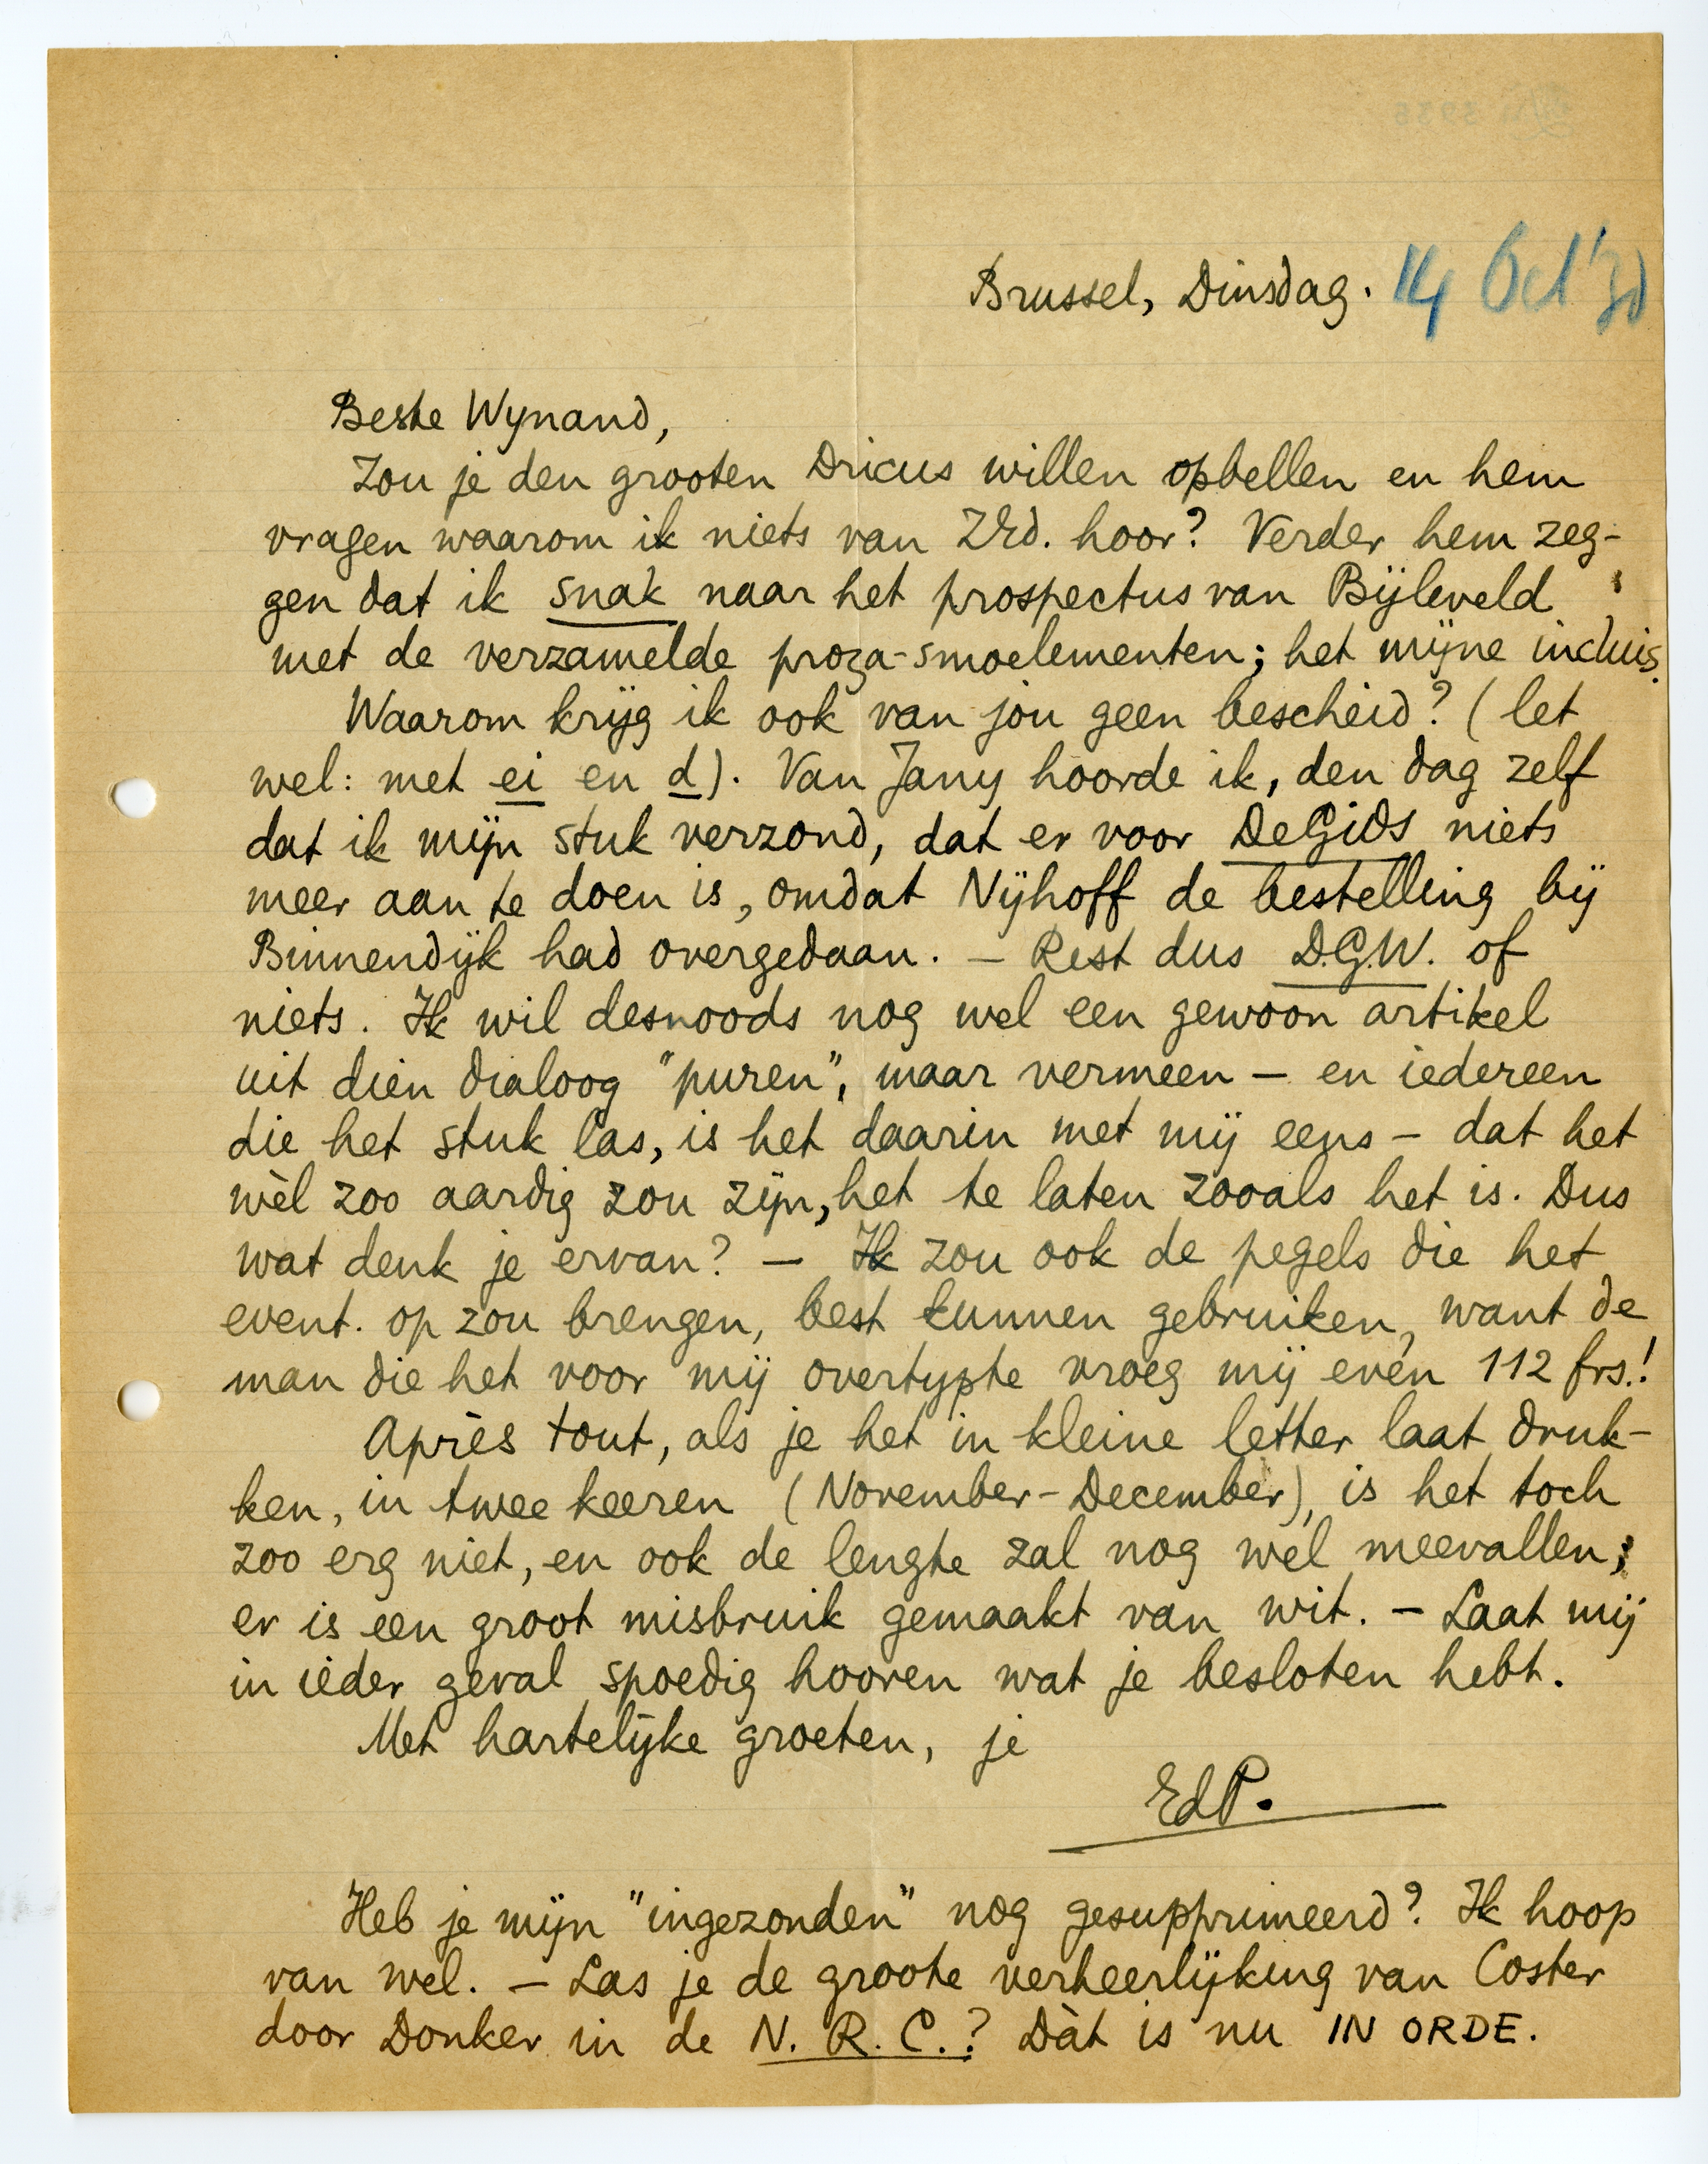 Brussel, Dinsdag. 14 Oct '30
Beste Wynand,
Zou je den grooten Dricus willen opbellen en hem
vragen waarom ik niets van ZEd. hoor? Verder hem zeg-
gen dat ik snak naar het prospectus van Bijleveld
met de verzamelde proza-smoelementen; het mijne incluis.
Waarom krijg ik ook van jou geen bescheid? (let
wel: met ei en d). Van Jany hoorde ik, den dag zelf
dat ik mijn stuk verzond, dat er voor De Gids niets
meer aan te doen is, omdat Nijhoff de bestelling bij
Binnendijk had overgedaan. – Rest dus D.G.W. of
niets. Ik wil desnoods nog wel een gewoon artikel
uit dien dialoog "puren", maar vermeen – en iedereen
die het stuk las, is het daarin met mij eens – dat het
wèl zoo aardig zou zijn, het te laten zooals het is. Dus
wat denk je ervan? – Ik zou ook de pegels die het
event. op zou brengen, best kunnen gebruiken, want de
man die het voor mij overtypte vroeg mij even 112 frs.!
Après tout, als je het in kleine letter laat druk-
ken, in twee keeren (November-December), is het toch
zoo erg niet, en ook de lengte zal nog wel meevallen;
er is een groot misbruik gemaakt van wit. – Laat mij
in ieder geval spoedig hooren wat je besloten hebt.
Met hartelijke groeten, je
EdP.
Heb je mijn "ingezonden" nog gesupprimeerd? Ik hoop
van wel. – Las je de groote verheerlijking van Coster
door Donker in de N.R.C.? Dàt is nu IN ORDE.